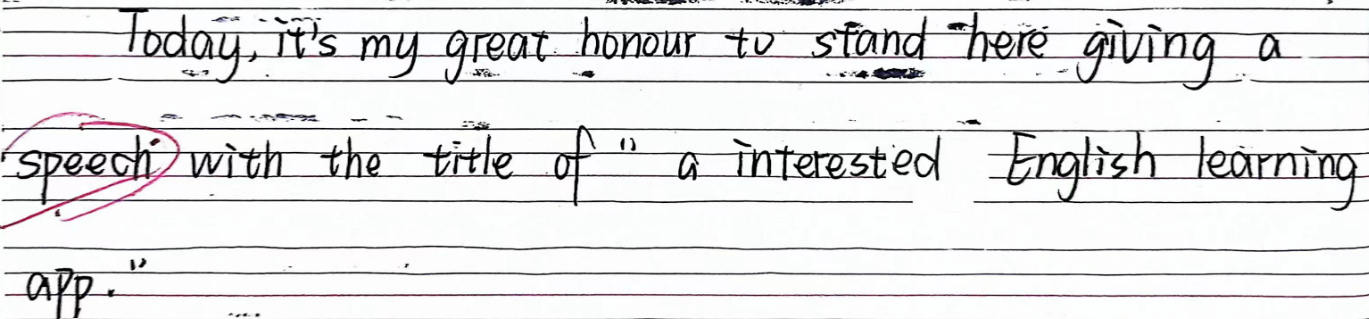 Today, it's my great honour to stand here giving a
speech with the title of " a interested English learning
app."